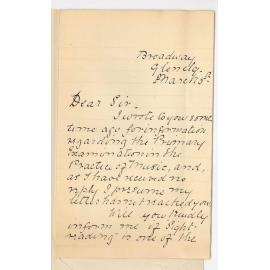 Broadway
Glenelg.
March 5th
Dear Sir.
I wrote to you some
time ago for information
regarding the Primary
Examination in the
Practice of Music, and,
as I have received no
reply I presume my
letter has not reached you.
Will you kindly
inform me if Sight-
reading is one of the